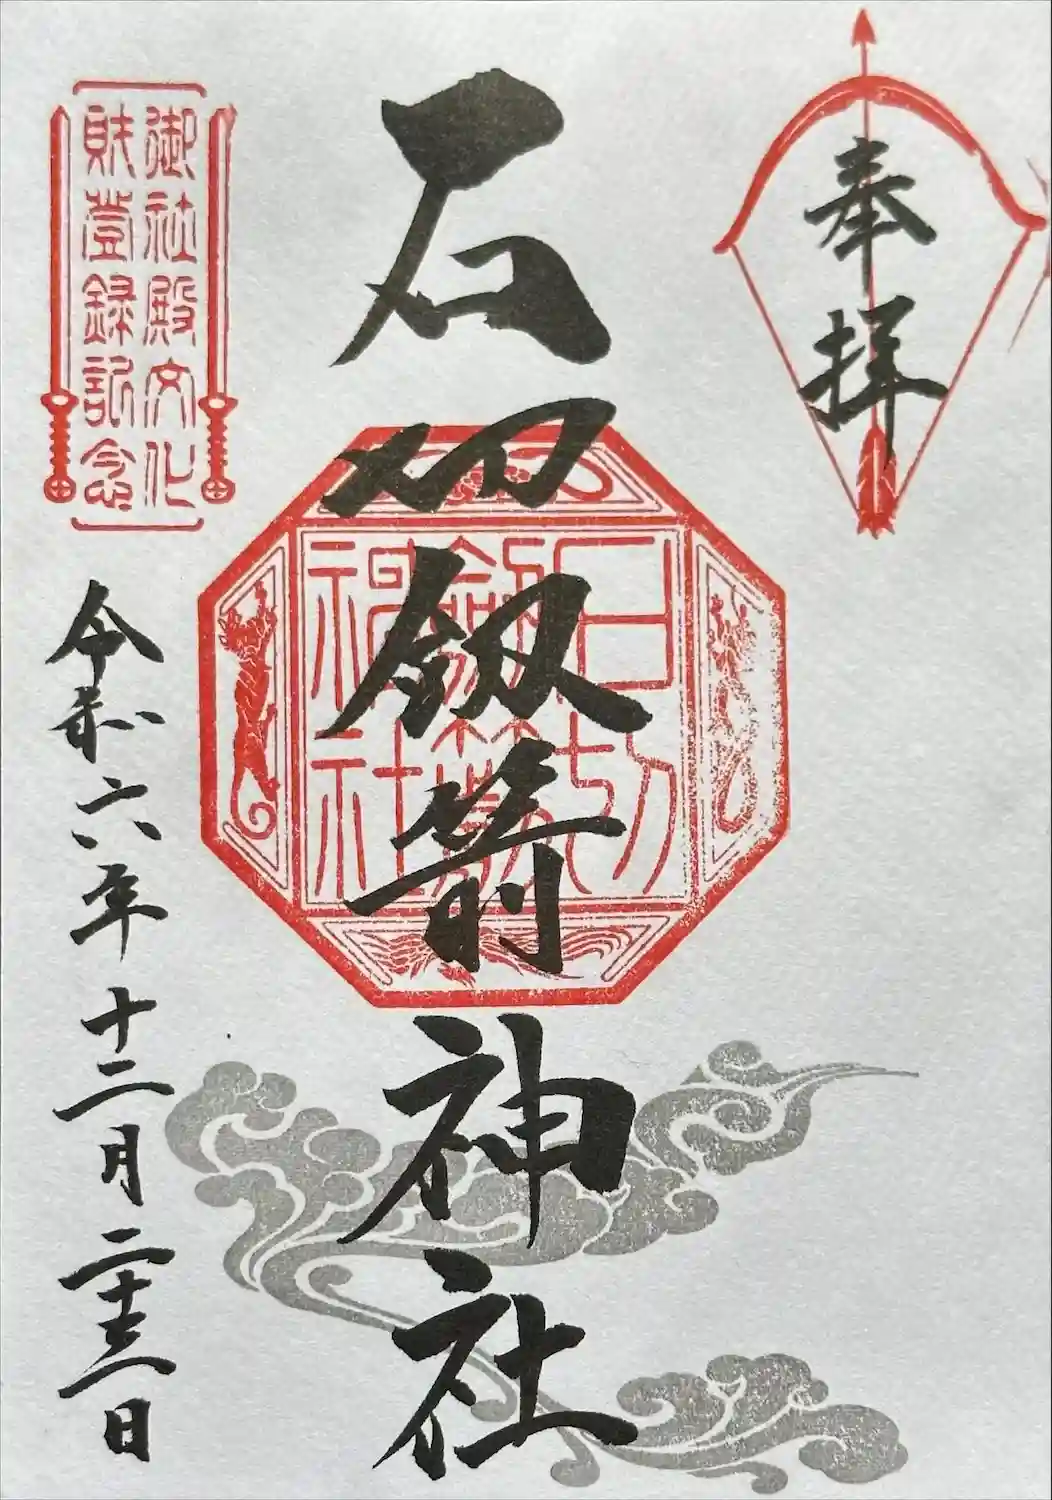 奉拝
石切剱箭神社
石切
劔箭
神社
御社殿文化
財登録記念
令和六年十二月二十三日